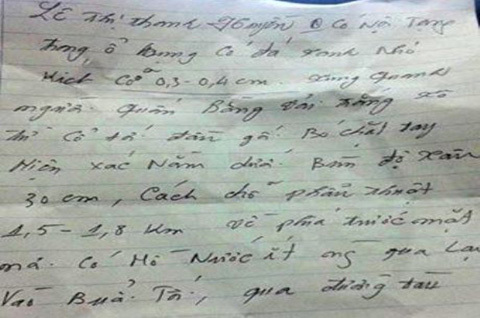 LÊ Thị thanh Có Nội Tạng
trong ổ bụng Có đá xanh Nhỏ
Kích Cỡ 0,3-0,4 cm. xung quanh
người. Quấn Bằng vải. trắng xô
thi Cổ tá đàn gố. Bó chất tay
Hiện xác Nằm dưới Bùn độ Xâu
30 cm, Cách chỗ phẩu thuật
1,5 - 1,8 Km về phía trước mặt
mà. Có Hố Nước ít ng qua Lại
Vào Buổi Tối, qua đường tàu